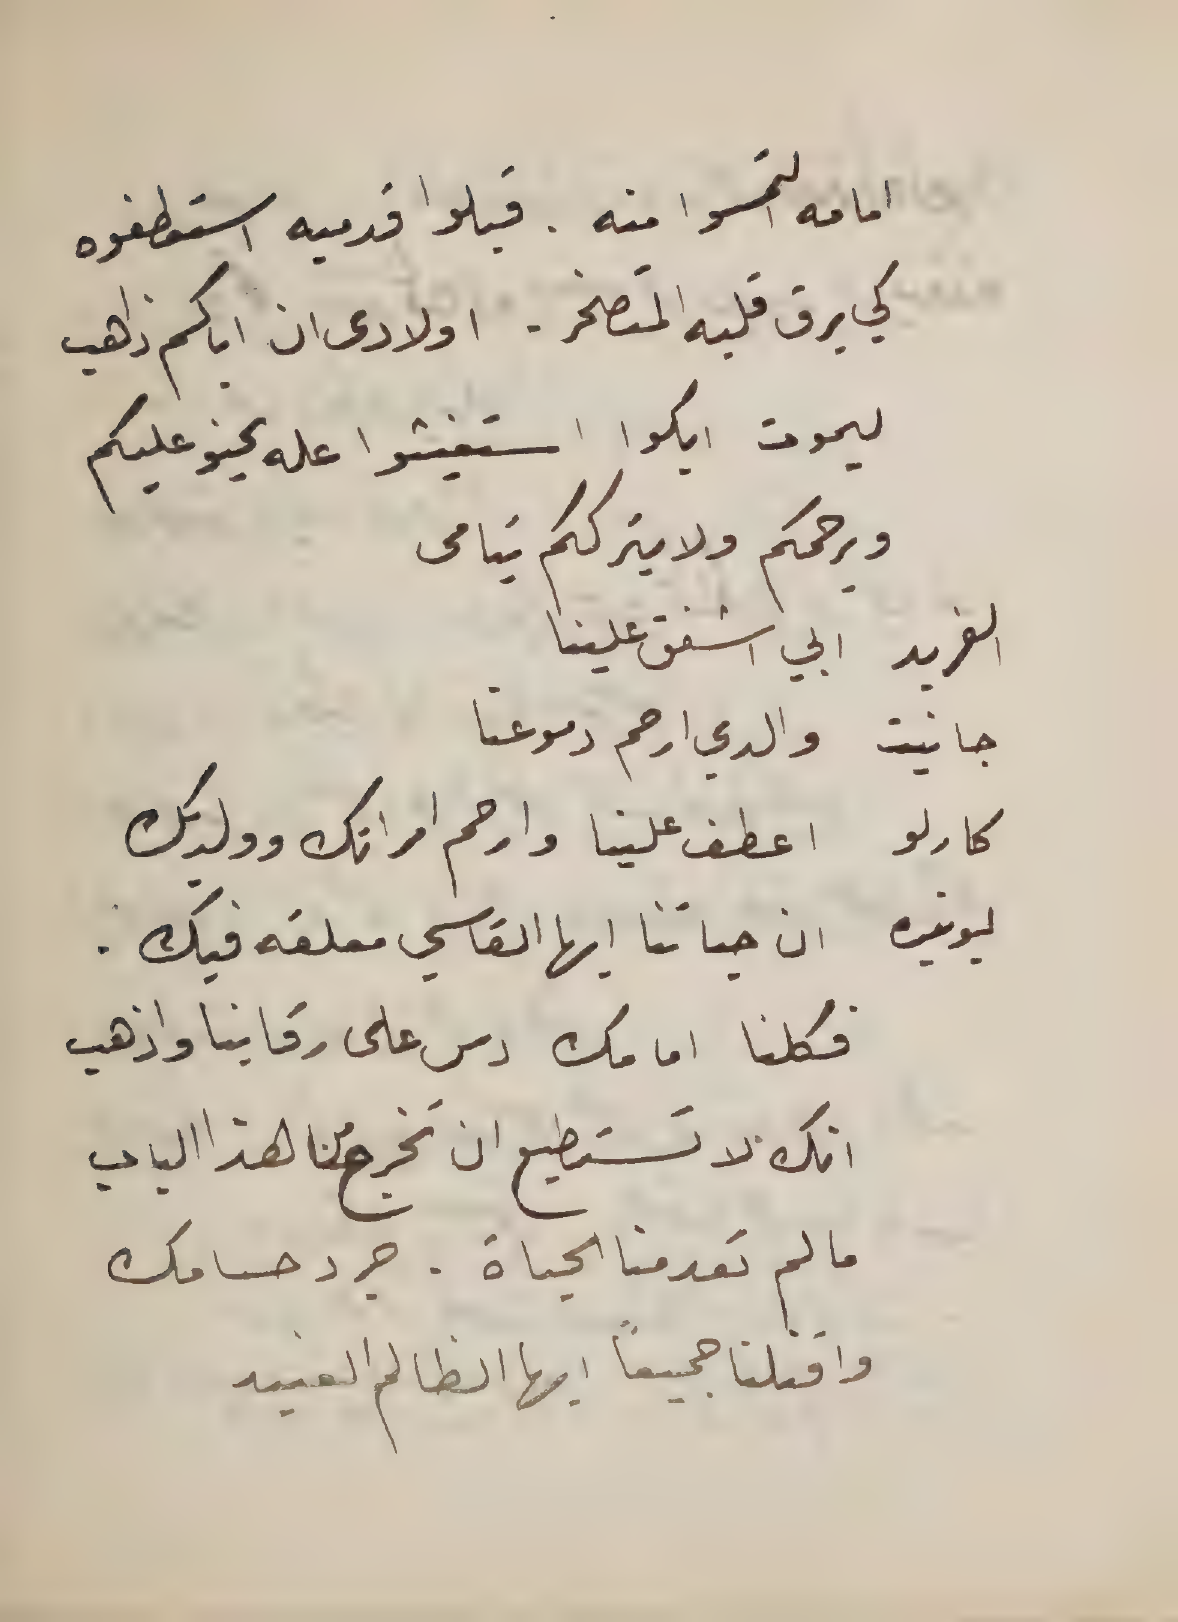 امامه التمسوا منه . قبلوا قدميه استعطفوه
كي يرق قلبه المتصخر . اولادى ان اباكم ذاهب
ليموت ابكوا استغيثوا عله يحنو عليكم
ويرحمكم ولا يترككم يتامى
الفريد ابي اشفق علينا
جانيت والدي ارحم دموعنا
كارلو اعطف علينا وارحم امراتك وولديك
ليونيره ان حياتنا ايها القاسي معلقه فيك .
فكلنا امامك دس على رقابنا واذهب
انك لا تستطيع ان تخرج من هذا الباب
ما لم تعدمنا الحياة . جرد حسامك
واقتلنا جميعاً ايها الظالم العنيد